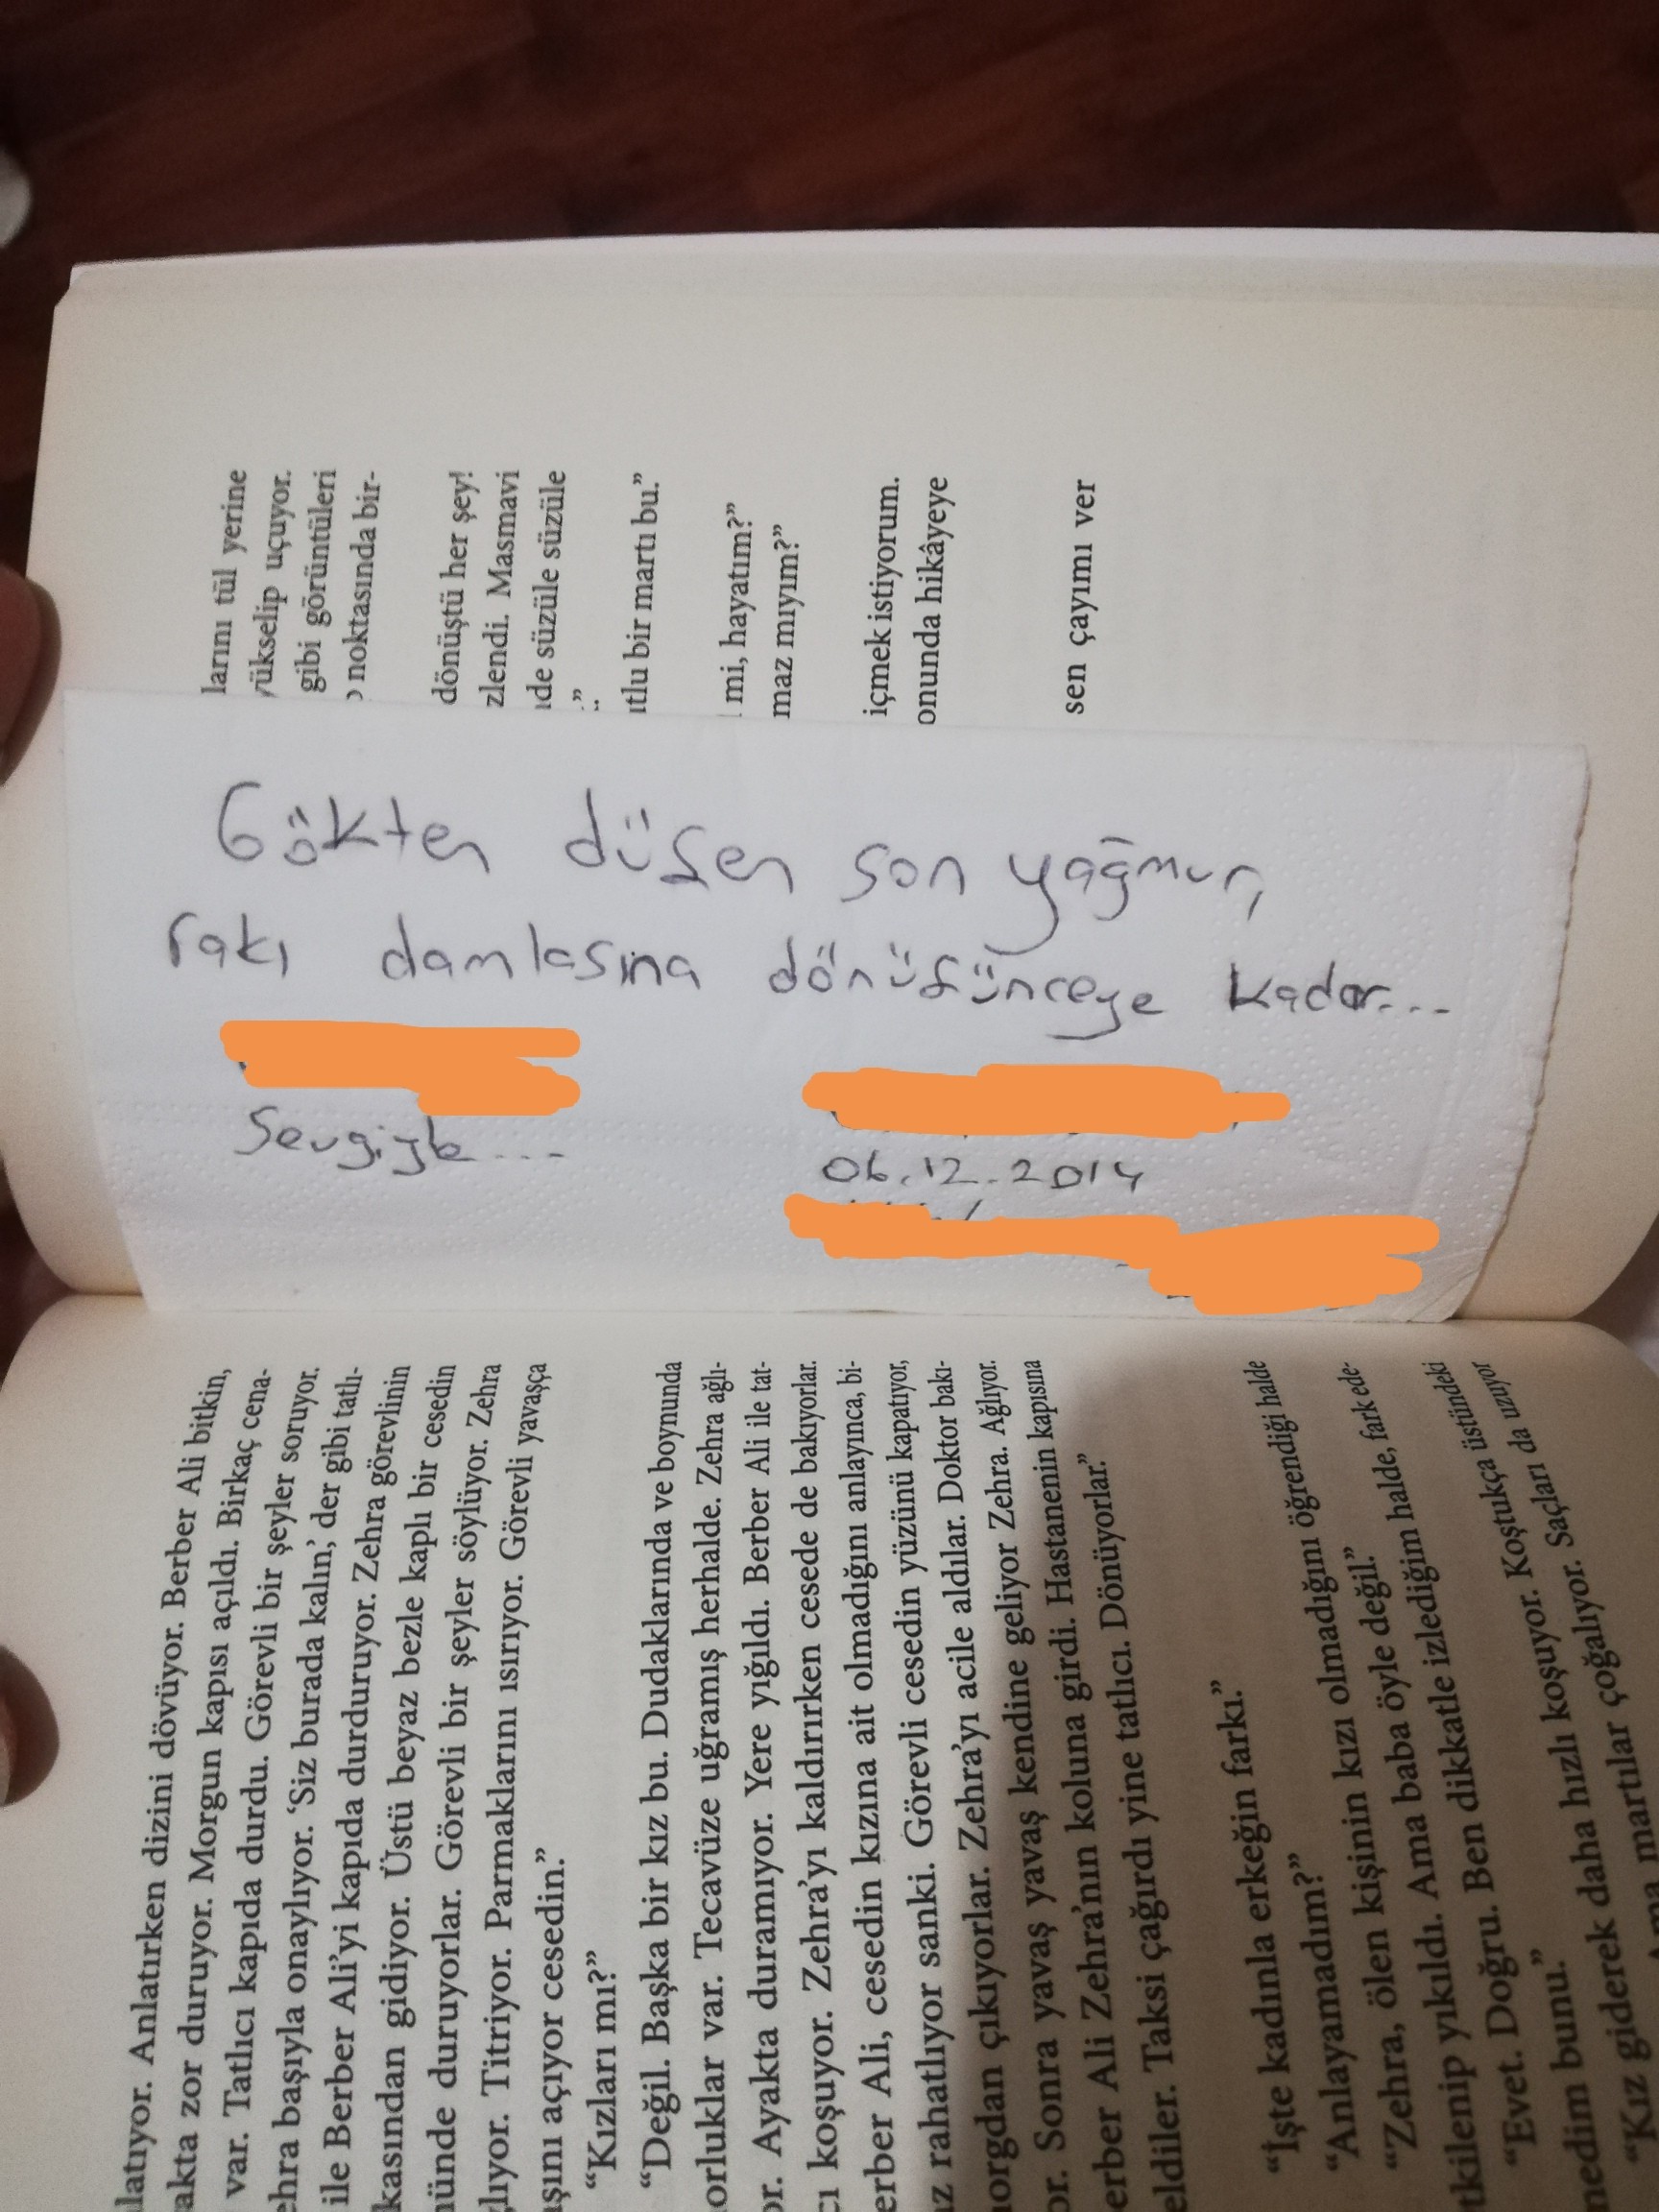 larını tül yerine
yükselip uçuyor.
gibi görüntüleri
noktasında bir-
dönüştü her şey!
zlendi. Masmavi
de süzüle süzüle
.”
utlu bir martı bu.”
mi, hayatım?”
maz mıyım?”
içmek istiyorum.
onunda hikâyeye
sen çayımı ver
Gökten düşen son yağmur,
rakı damlasına dönüşünceye kadar...
Sevgiyle...
06.12.2014
latıyor. Anlatırken dizini dövüyor. Berber Ali bitkin,
yakta zor duruyor. Morgun kapısı açıldı. Birkaç cena-
var. Tatlıcı kapıda durdu. Görevli bir şeyler soruyor.
ehra başıyla onaylıyor. ‘Siz burada kalın,’ der gibi tatlı-
ile Berber Ali’yi kapıda durduruyor. Zehra görevlinin
kasından gidiyor. Üstü beyaz bezle kaplı bir cesedin
nünde duruyorlar. Görevli bir şeyler söylüyor. Zehra
ğlıyor. Titriyor. Parmaklarını ısırıyor. Görevli yavaşça
aşını açıyor cesedin.”
“Kızları mı?”
“Değil. Başka bir kız bu. Dudaklarında ve boynunda
orluklar var. Tecavüze uğramış herhalde. Zehra ağlı-
or. Ayakta duramıyor. Yere yığıldı. Berber Ali ile tat-
cı koşuyor. Zehra’yı kaldırırken cesede de bakıyorlar.
erber Ali, cesedin kızına ait olmadığını anlayınca, bi-
z rahatlıyor sanki. Görevli cesedin yüzünü kapatıyor,
orgdan çıkıyorlar. Zehra’yı acile aldılar. Doktor bakı-
or. Sonra yavaş yavaş kendine geliyor Zehra. Ağlıyor.
erber Ali Zehra’nın koluna girdi. Hastanenin kapısına
eldiler. Taksi çağırdı yine tatlıcı. Dönüyorlar.”
“İşte kadınla erkeğin farkı.”
“Anlayamadım?”
“Zehra, ölen kişinin kızı olmadığını öğrendiği halde
tkilenip yıkıldı. Ama baba öyle değil.”
“Evet. Doğru. Ben dikkatle izlediğim halde, fark ede-
medim bunu.”
“Kız giderek daha hızlı koşuyor. Koştukça üstündeki
martılar çoğalıyor. Saçları da uzuyor